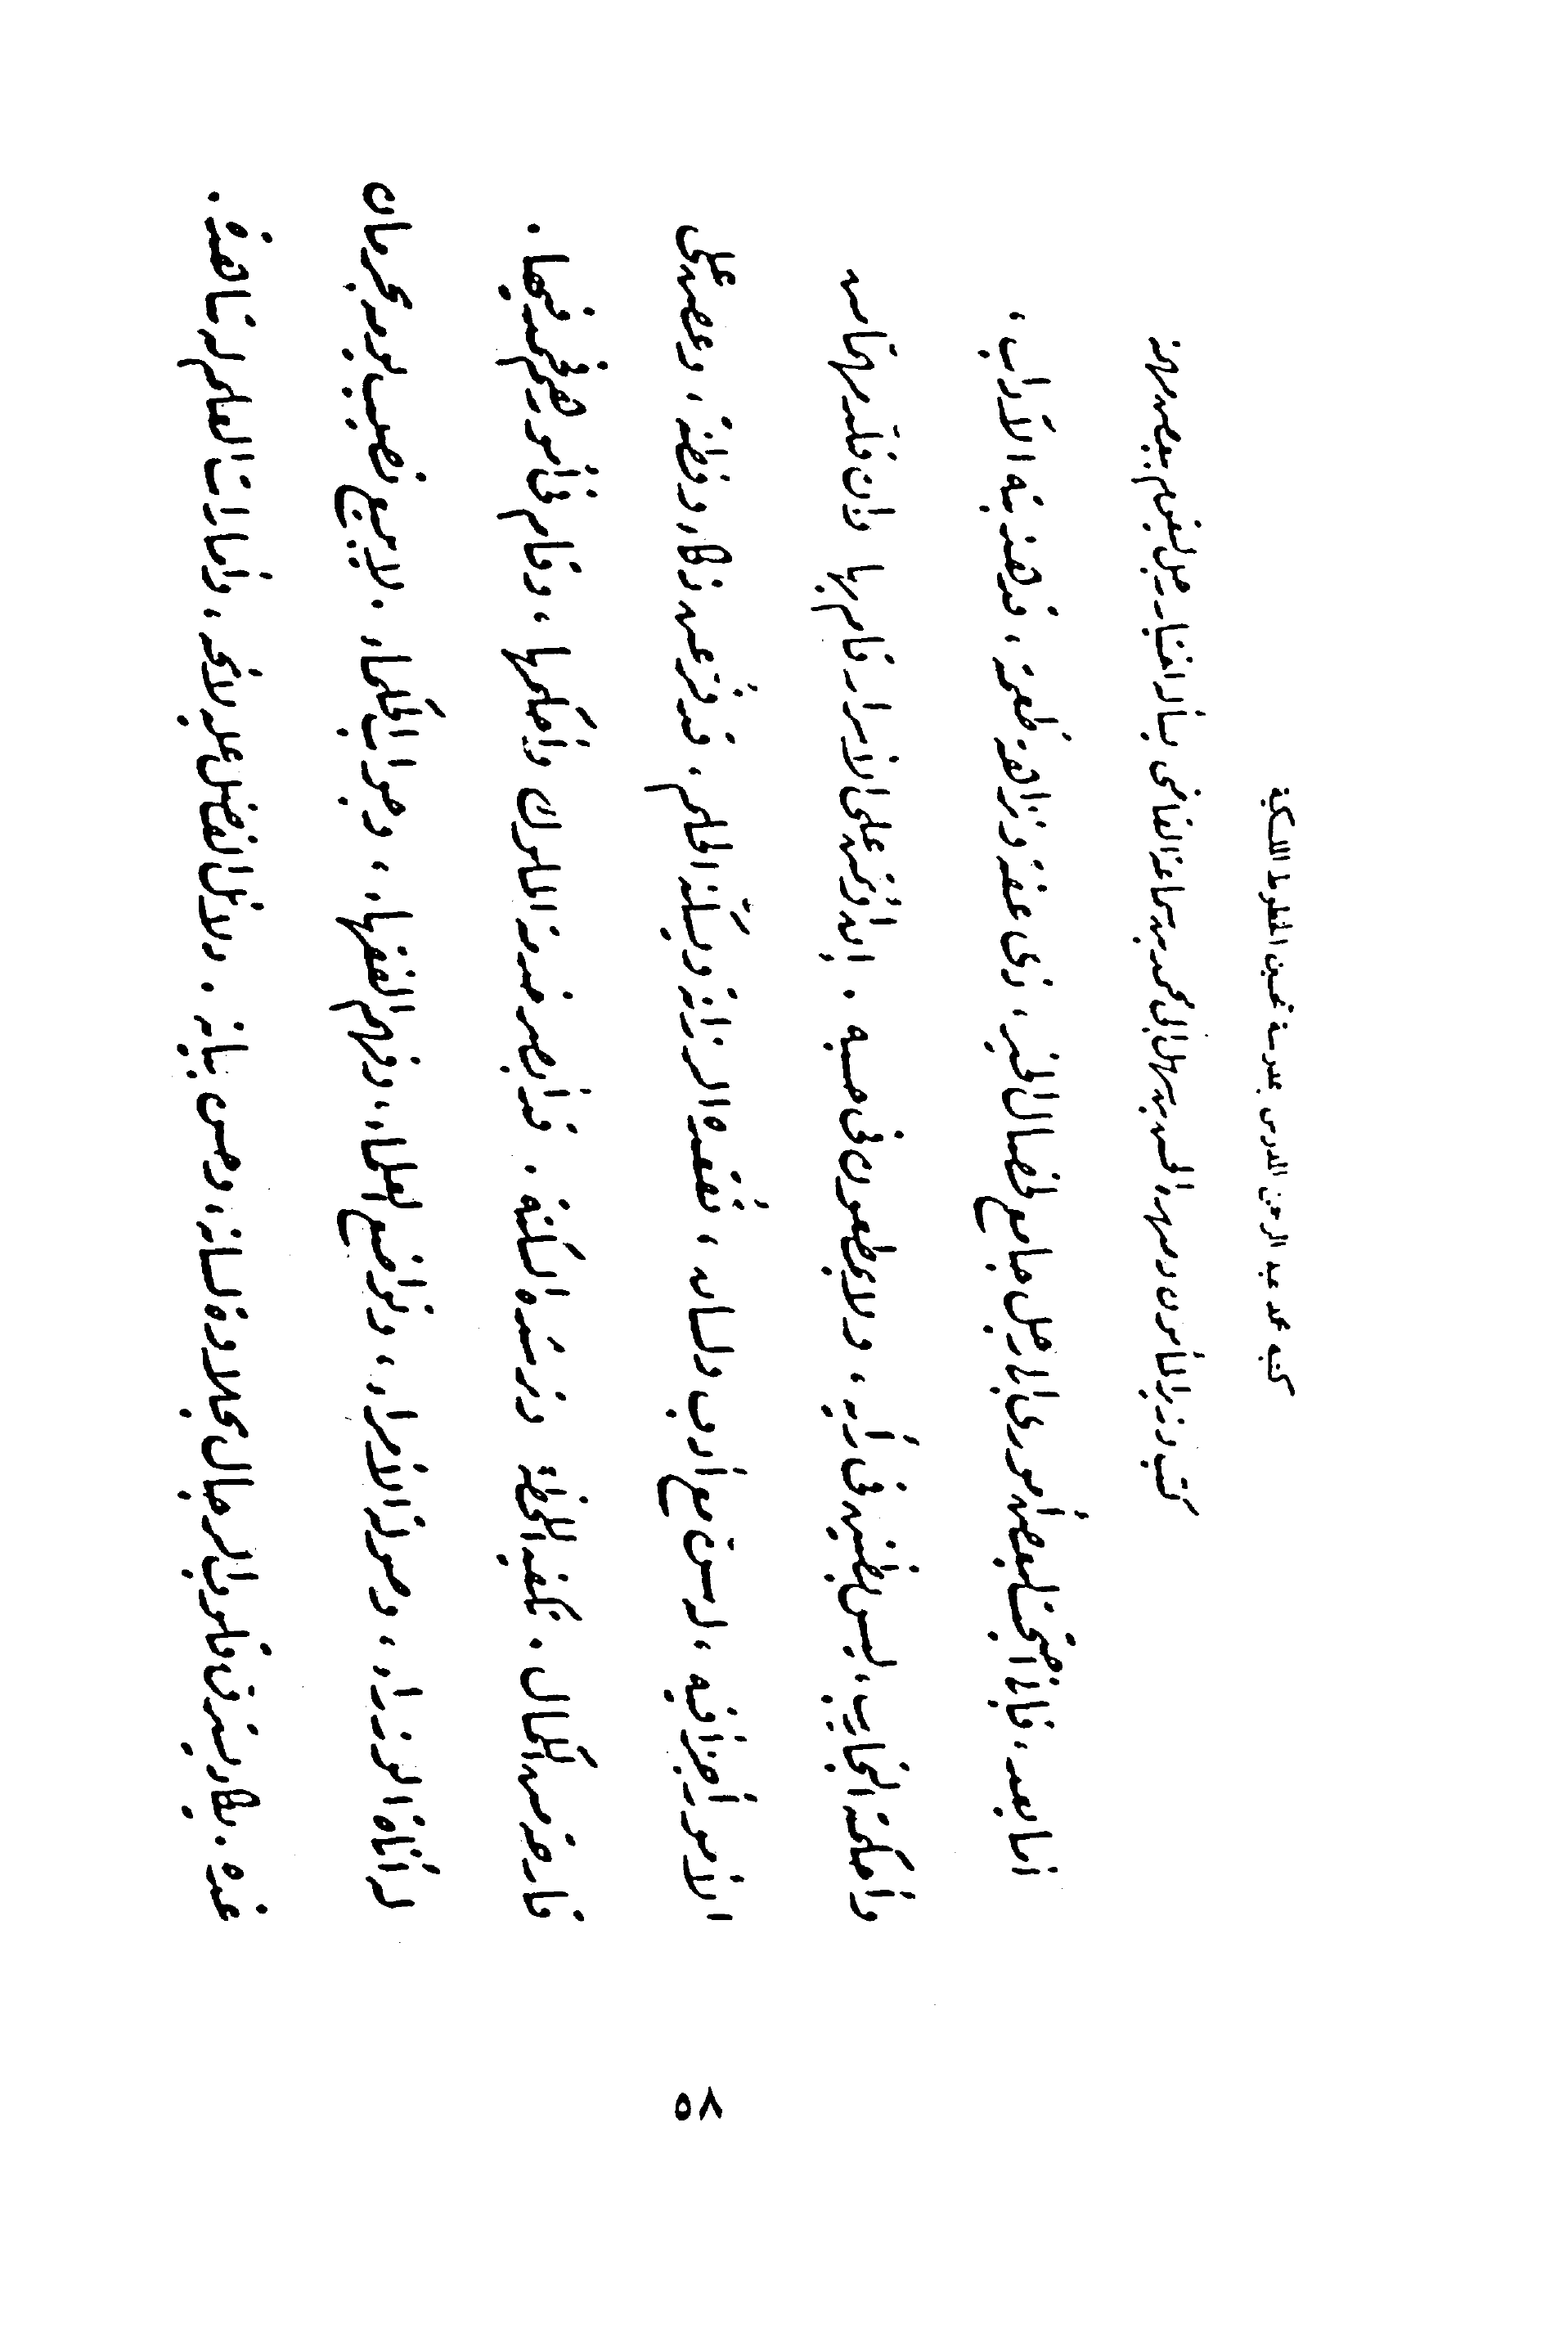 كتبه محمد عبد الرحمن المدرس بمدرسة تحسين الخطوط الملكية
كتب وزير المأمون وصهره الحسن بن سهل إلى محمد بن سماعة القاضي يسأله اختيار رجل ليقوم ببعض مهامه
أما بعد، فإنا احتجنا لبعض أمورى إلى رجل جامع لخصال الخير، ذى عفة ونزاهة طعمة، قد هذبته الآداب،
وأحكمته التجارب، ليس بظنين فى رأيه، ولا بمطعون فى حسبه. إن اؤتمن على الأسرار قام بها وإن قلّد مهما من
الأمور أجزأ فيه، له سن مع أدب ولسان، تُقعده الرزانة ويسكّنه الحلم. قد فُرّ عن ذكاء وفطنة، وعض على
قارحة من الكمال. تكفيه اللحظة وترشده السكتة. قد أبصر خدمة الملوك وأحكمها، وقام فى أمورهم فحُمد فيها.
له أناة الوزراء، وصولة الأمراء، وتواضع العلماء، وفهم الفقهاء، وجواب الحكماء. لا يبيع نصيب يومه بحرمان
غده. يكاد يسترق قلوب الرجال بحلاوة لسانه، وحسن بيانه. دلائل الفضل عليه لائحة، وأمارات العلم له شاهدة.
٨٥